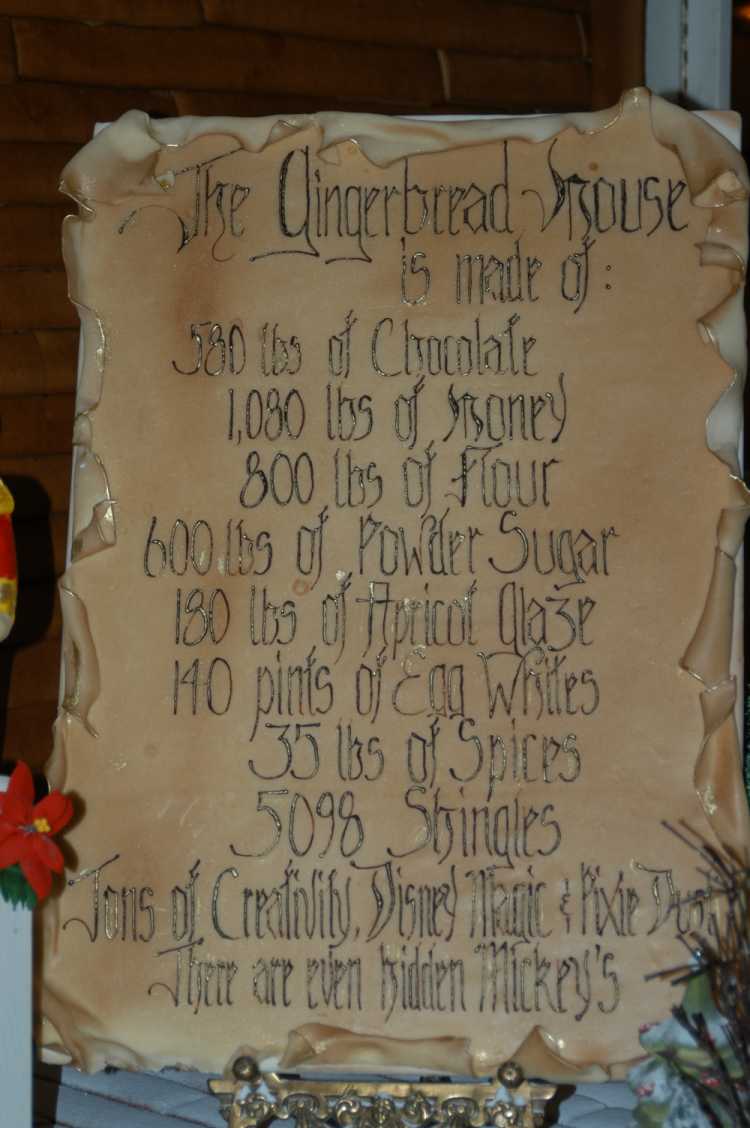 The Gingerbread House
is made of :
580 lbs of Chocolate
1,080 lbs of Honey
800 lbs of Flour
600 lbs of Powder Sugar
180 lbs of Apricot Glaze
140 pints of Egg Whites
35 lbs of Spices
5098 Shingles
Tons of Creativity, Disney Magic & Pixie Dust
There are even hidden Mickey's